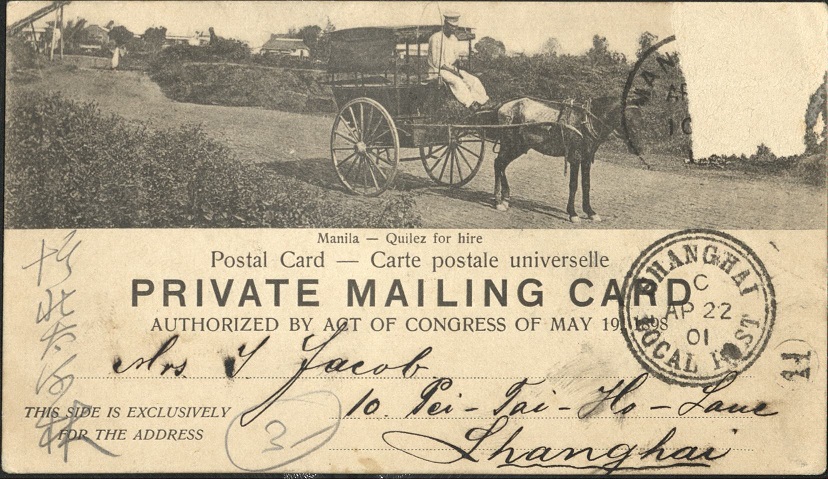 MAN
AP
10
Manila — Quilez for hire
Postal Card — Carte postale universelle
PRIVATE MAILING CARD
AUTHORIZED BY ACT OF CONGRESS OF MAY 19, 1898
SHANGHAI
C
AP 22
01
LOCAL POST
11
Mrs J Jacob
THIS SIDE IS EXCLUSIVELY
FOR THE ADDRESS
10. Pei-Tai-Ho-Lane
Shanghai
31